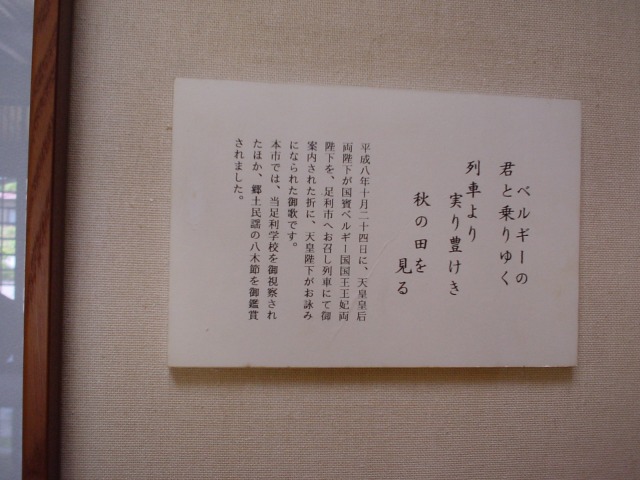 ベルギーの
君と乗りゆく
列車より
実り豊けき
秋の田を
見る
平成八年十月二十四日に、天皇皇后
両陛下が国賓ベルギー国国王王妃両
陛下を、足利市へお召し列車にて御
案内された折に、天皇陛下がお詠み
になられた御歌です。
本市では、当足利学校を御視察され
たほか、郷土民謡の八木節を御鑑賞
されました。